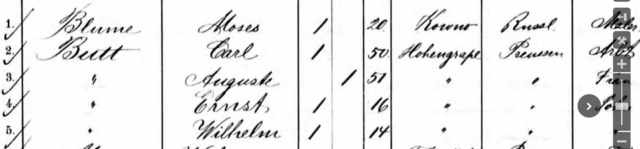 1. Blume Moses 1 20 Kowno Russl. Maler
2. Butt Carl 1 50 Hohengrape Preussen Arb
3. " Auguste 1 51 " " Frau
4. " Ernst 1 16 " " Sohn
5. " Wilhelm 1 14 " "